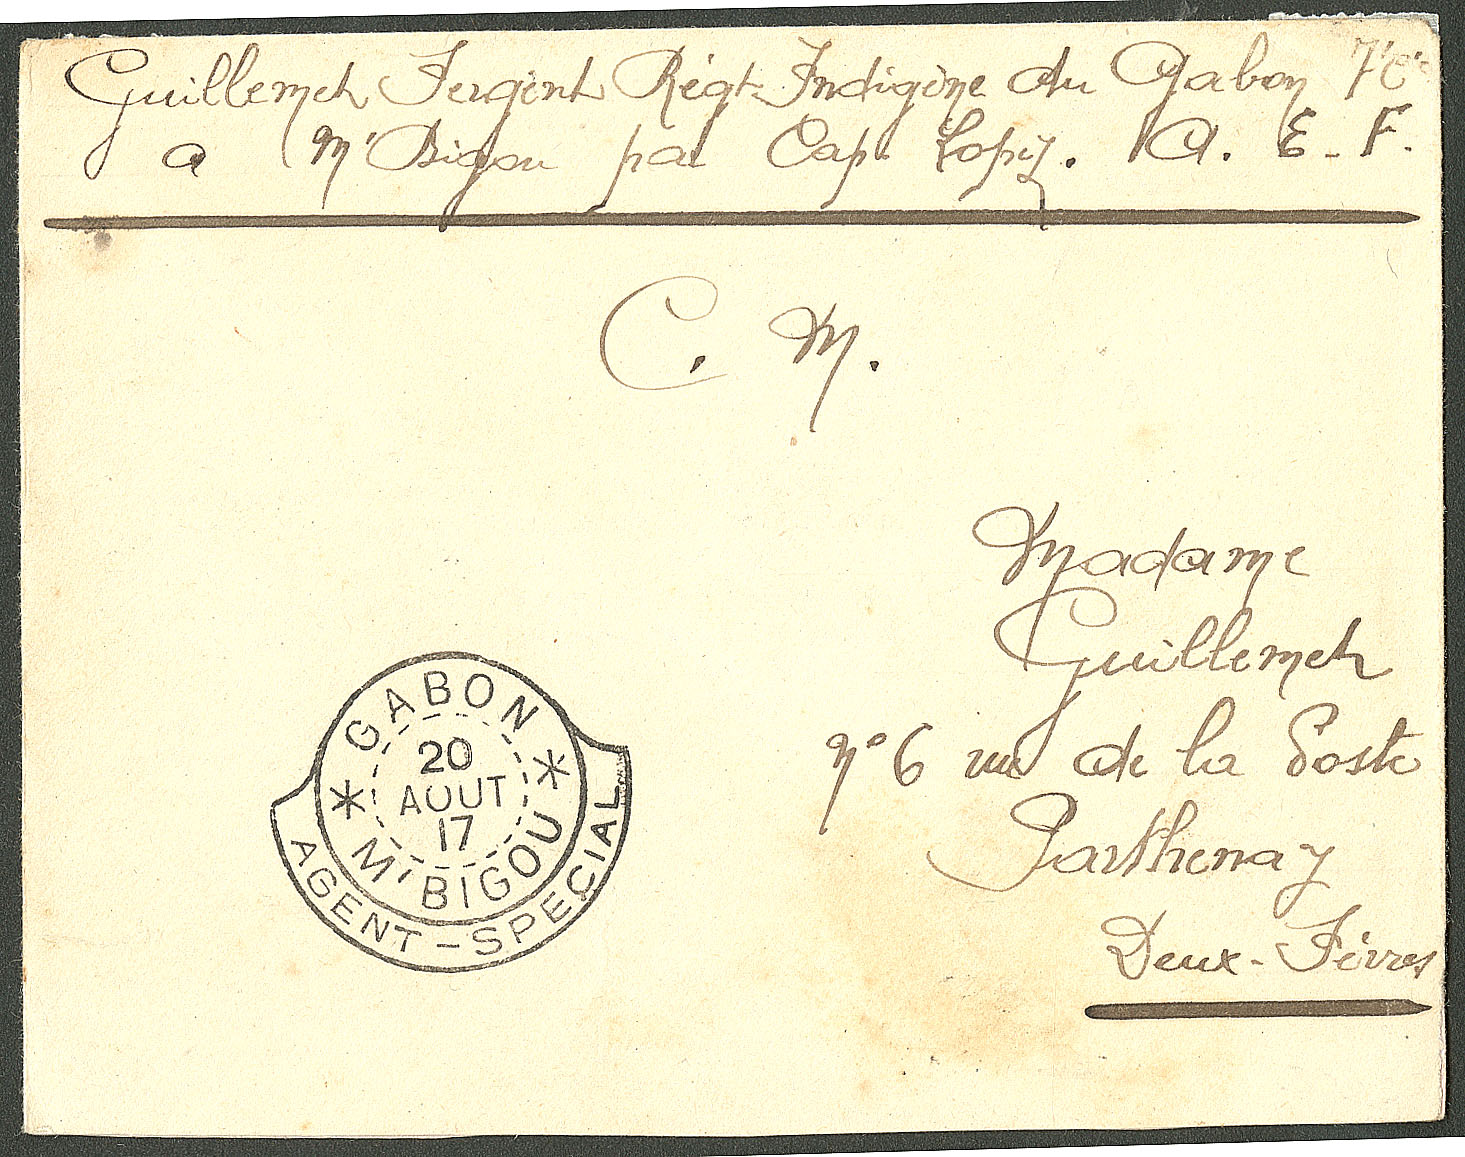 Guillemet Sergent Régt Indigène du Gabon 7e Cie
a M'Bigou par Cap Lopez. A. E. F.
C. M.
Madame
Guillemet
N° 6 rue de la Poste
Parthenay
Deux-Sèvres
GABON
20
AOUT
17
M'BIGOU
AGENT-SPECIAL